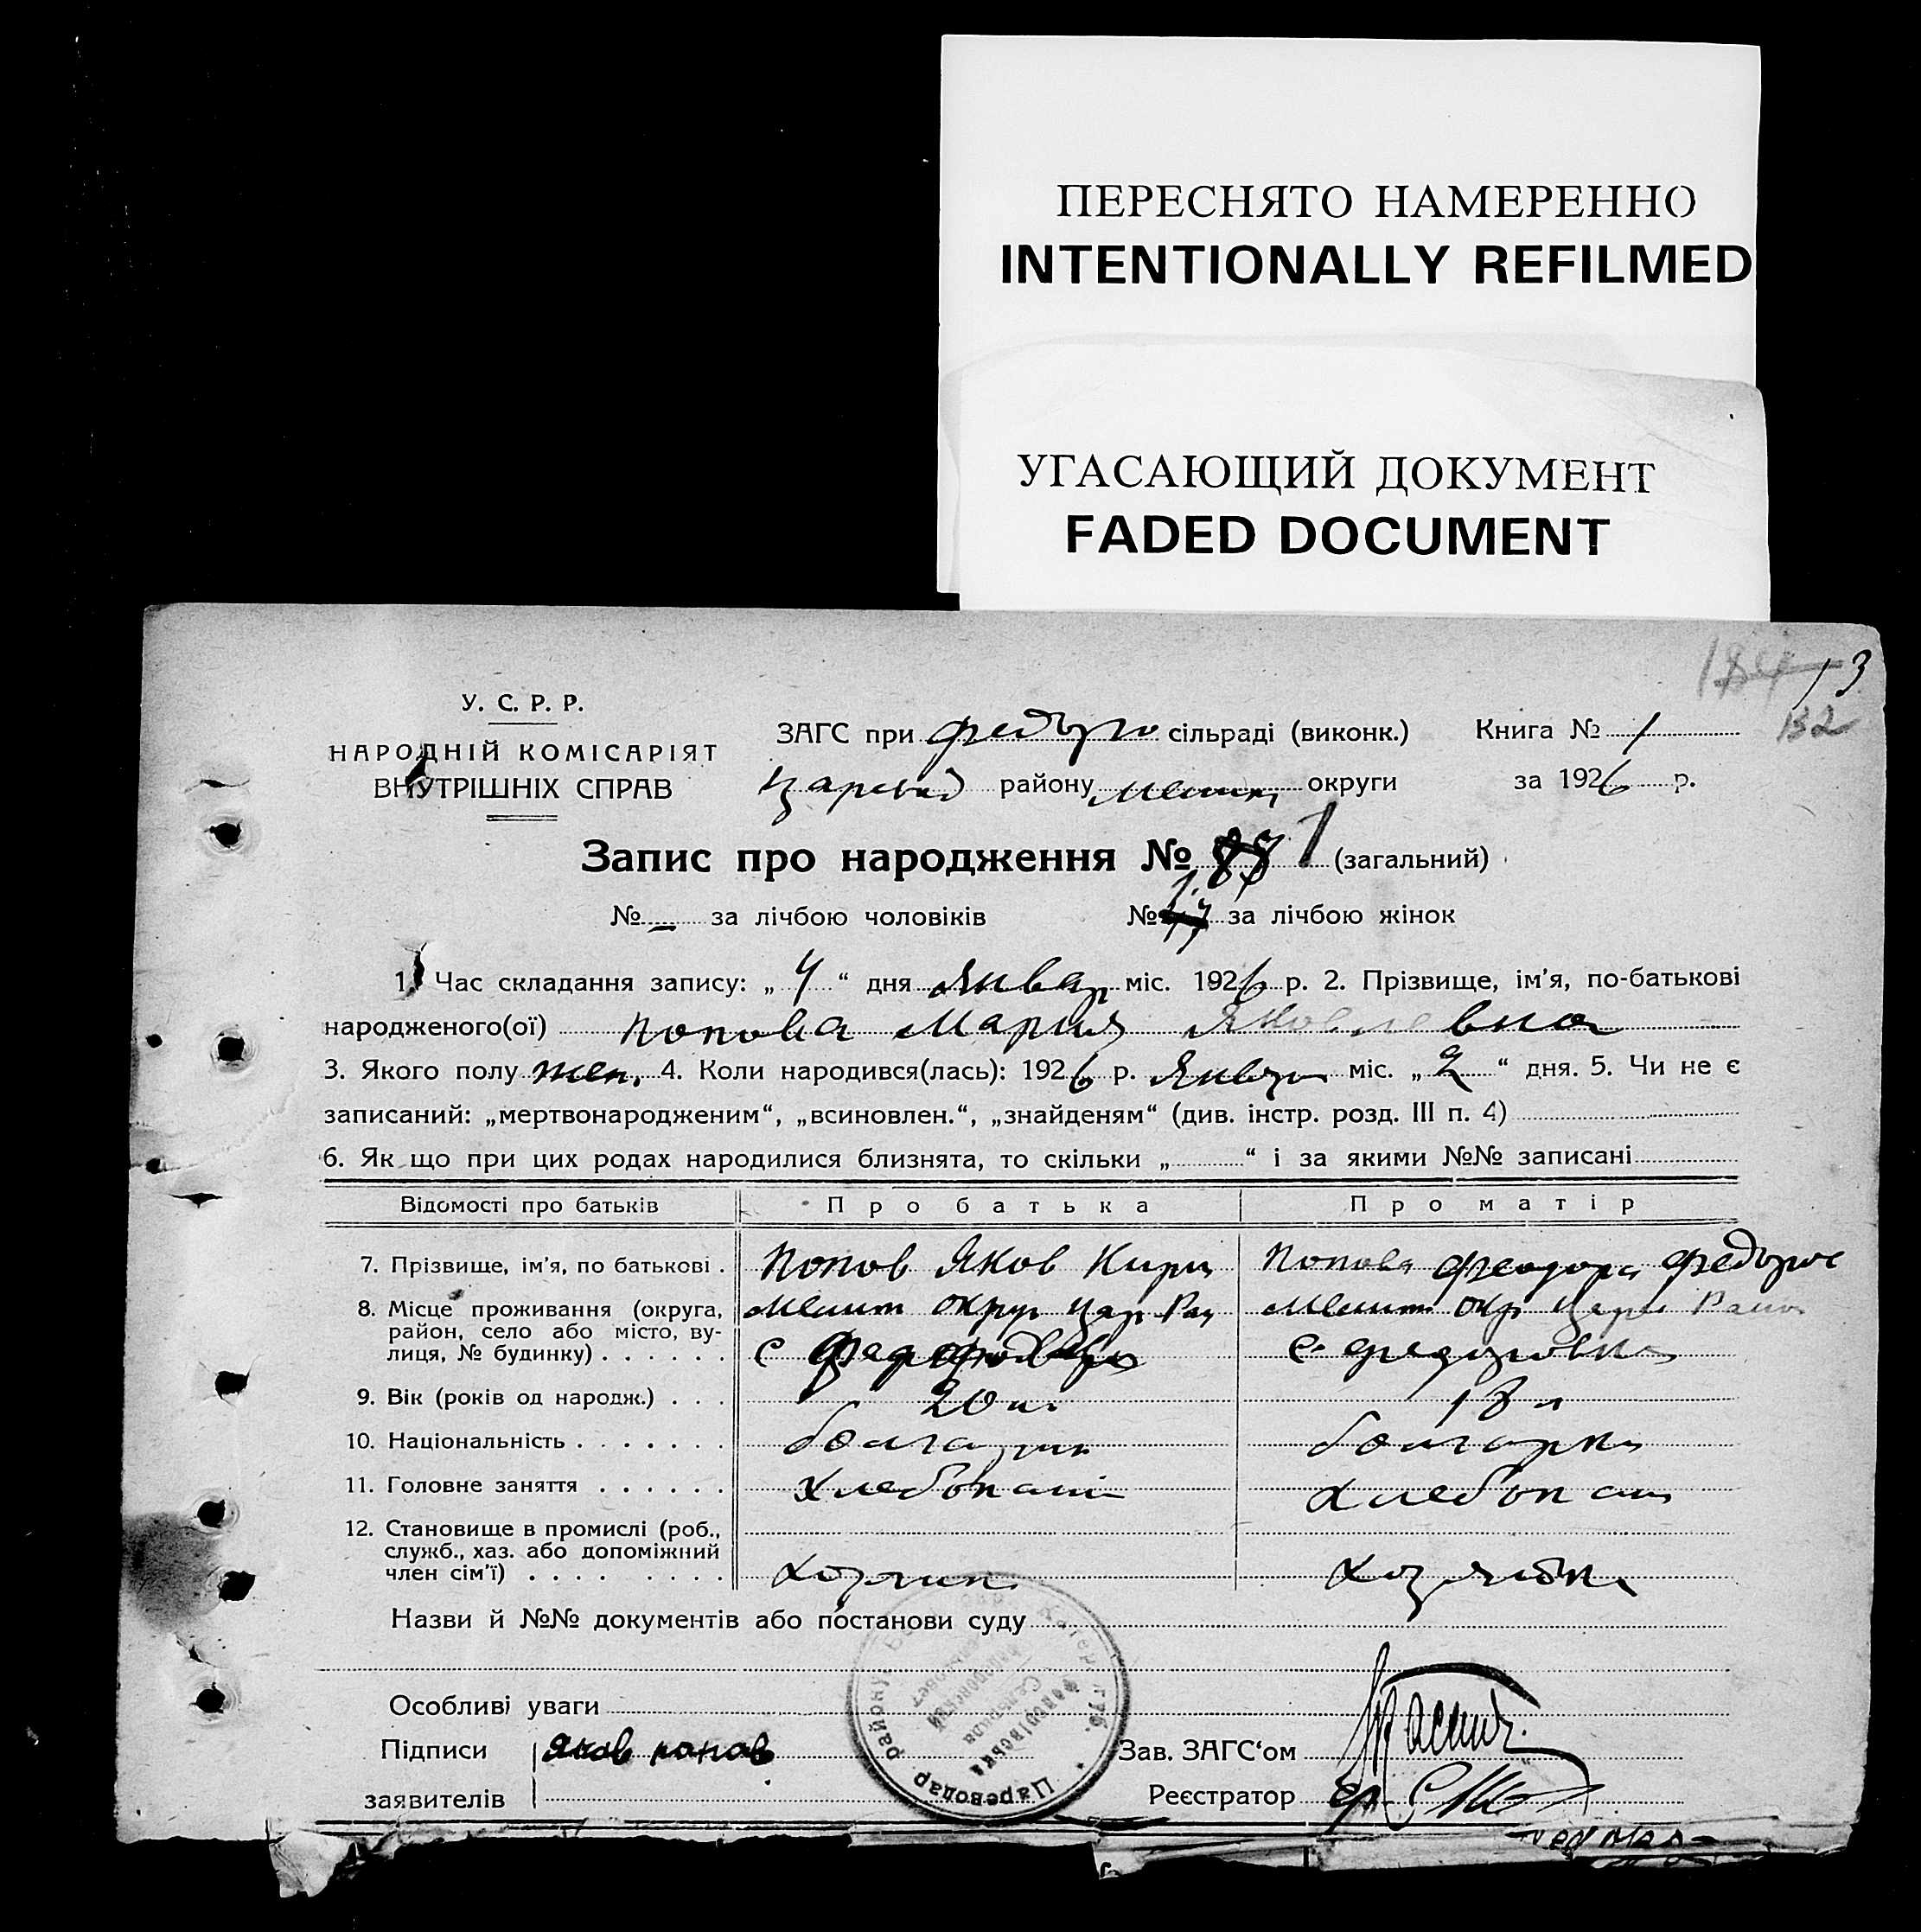 ПЕРЕСНЯТО НАМЕРЕННО
INTENTIONALLY REFILMED
УГАСАЮЩИЙ ДОКУМЕНТ
FADED DOCUMENT
13
132
У. С. Р. Р.
НАРОДНІЙ КОМІСАРІЯТ
ВНУТРІШНІХ СПРАВ
ЗАГС при сільраді (виконк.) Книга № 1
району округи за 1926 р.
Запис про народження № 1 (загальний)
№ – за лічбою чоловіків № за лічбою жінок
1. Час складання запису: „ 4 “ дня Январ міс. 1926 р. 2. Прізвище, ім’я, по-батькові
народженого(ої) Попова Мария Яковлевна
3. Якого полу жен. 4. Коли народився(лась): 1926 р. Января міс. „ 2 “ дня. 5. Чи не є
записаний: „мертвонародженим“, „всиновлен.“, „знайденям“ (див. інстр. розд. III п. 4)
6. Як що при цих родах народилися близнята, то скільки „ “ і за якими №№ записані
Відомості про батьків Про батька Про матір
7. Прізвище, ім’я, по батькові . Попов Яков Кири Попова Феодора Федоров
8. Місце проживання (округа, Мелит округ Цар Ра Мелит окр Царе Раио
район, село або місто, ву-
лиця, № будинку) . . . . . . с с. Федоровка
9. Вік (років од народж.) . . . 20 л. 18 л
10. Національність . . . . . . . болгарин болгарка
11. Головне заняття . . . . . . хлебопаш хлебопаш
12. Становище в промислі (роб.,
служб., хаз. або допоміжний
член сім’ї) . . . . . . . . хозяин хозяйка
Назви й №№ документів або постанови суду
Особливі уваги
Підписи Яков попов
Зав. ЗАГС‘ом
заявителів
Реєстратор
Цареводар. району
Сельрада